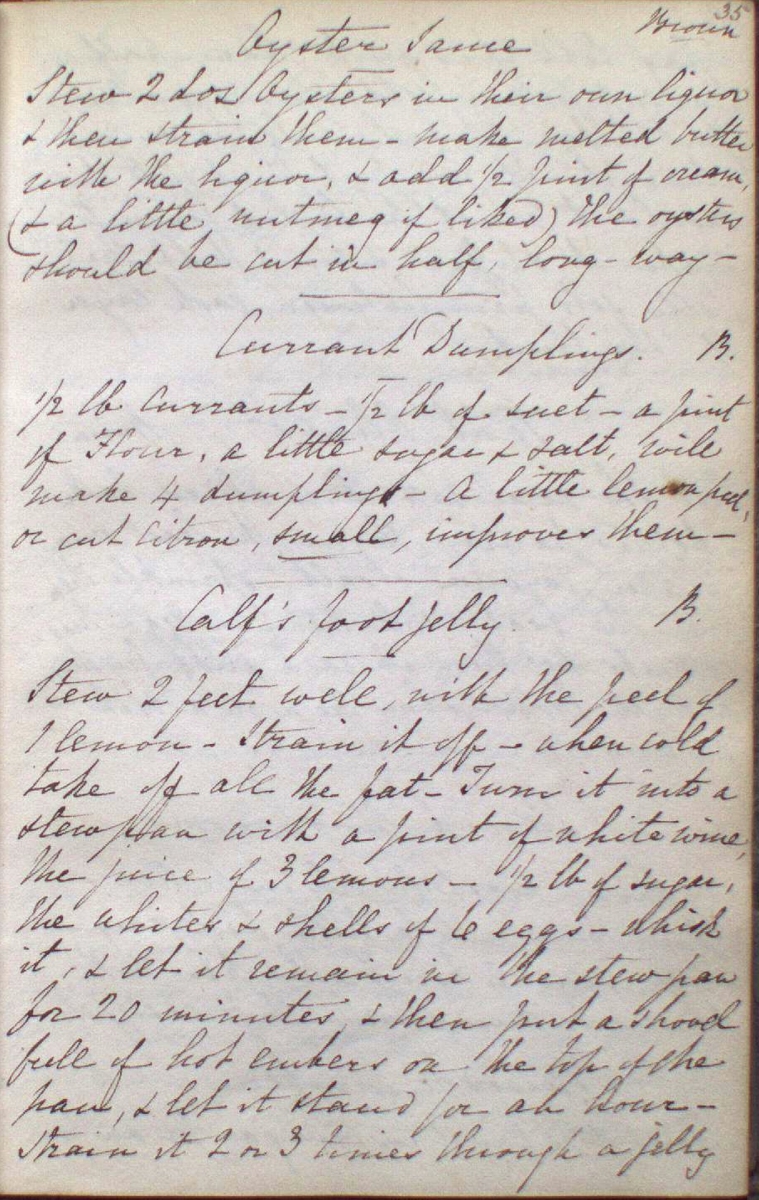 35
Brown
Oyster Sauce
Stew 2 doz Oysters in their own liquor
& then strain them - make melted butter
with the liquor, & add 1/2 pint of cream,
(& a little nutmeg if liked) The oysters
should be cut in half, long-way -
Currant Dumplings. B.
1/2 lb Currants - 1/2 lb of suet - a pint
of Flour, a little sugar & salt, will
make 4 dumplings - A little lemon peel,
or cut Citron, small, improves them -
Calf's foot jelly. B.
Stew 2 feet well, with the peel of
1 lemon - Strain it off - when cold
take off all the fat - Turn it into a
stewpan with a pint of white wine,
the juice of 3 lemons - 1/2 lb of sugar,
the whites & shells of 6 eggs - whisk
it, & let it remain in the stewpan
for 20 minutes, & then put a shovel
full of hot embers on the top of the
pan, & let it stand for an hour -
Strain it 2 or 3 times through a jelly